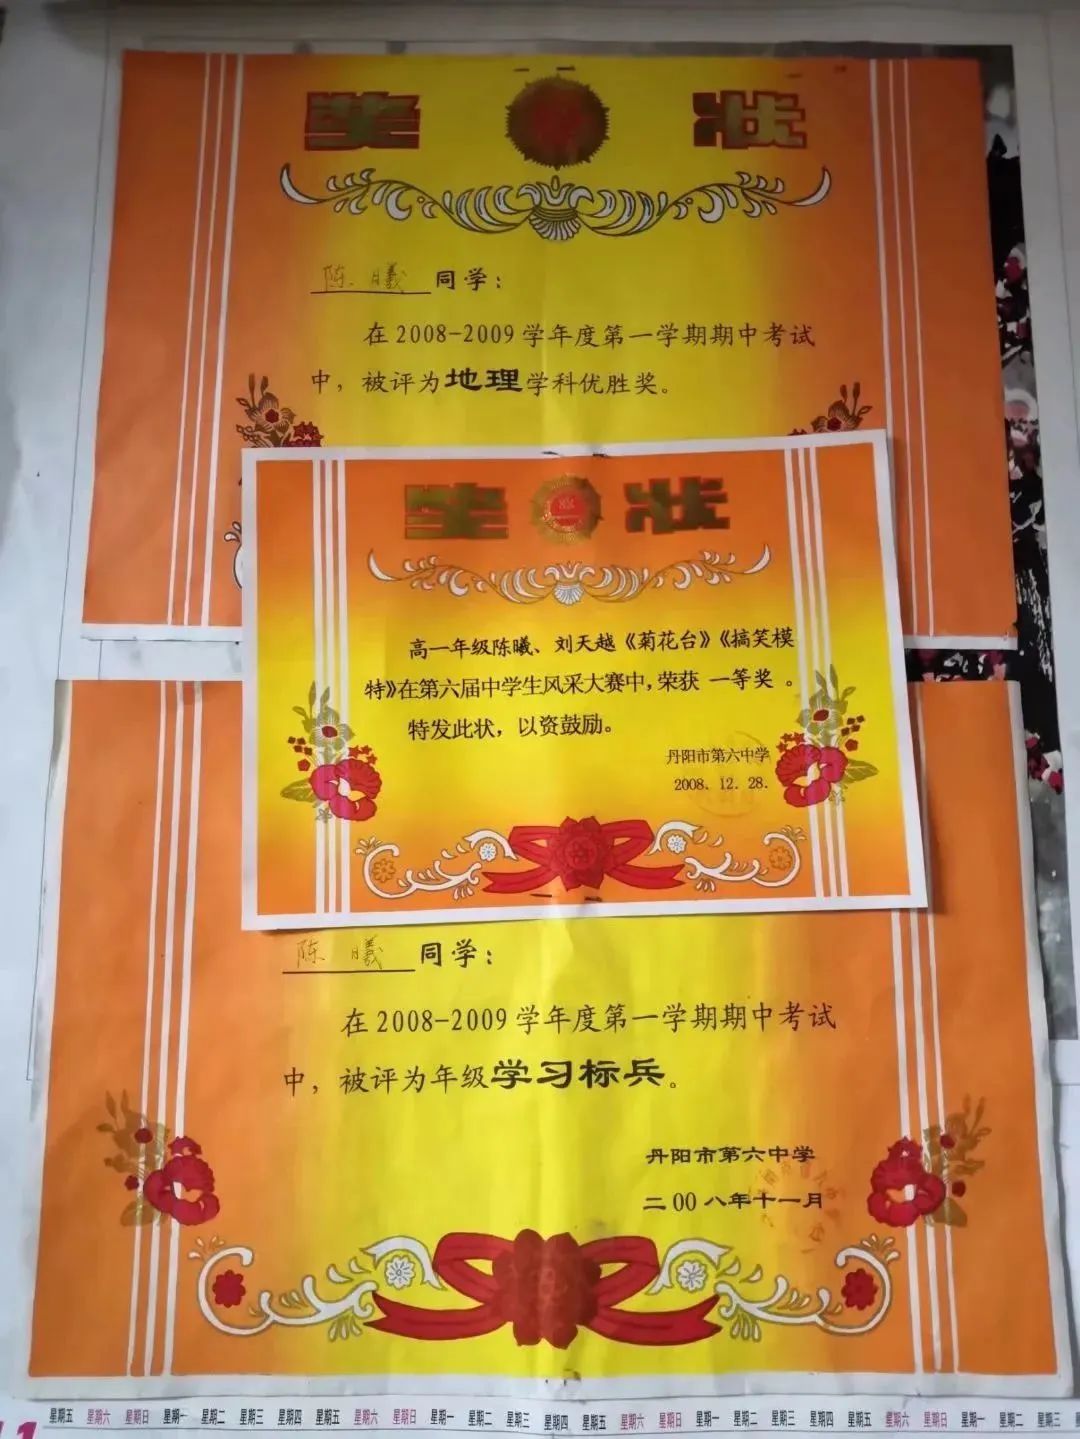 奖 状
陈曦 同学：
在2008-2009学年度第一学期期中考试
中，被评为地理学科优胜奖。
奖 状
高一年级陈曦、刘天越《菊花台》《搞笑模
特》在第六届中学生风采大赛中，荣获 一等奖 。
特发此状，以资鼓励。
丹阳市第六中学
2008．12．28．
陈曦 同学：
在2008-2009学年度第一学期期中考试
中，被评为年级学习标兵。
丹阳市第六中学
二00八年十一月
星期五 星期六 星期日 星期一 星期二 星期三 星期四 星期五 星期六 星期日 星期一 星期二 星期三 星期四 星期五 星期六 星期日 星期一 星期二 星期三 星期四 星期五 星期六 星期日 星期一 星期二 星期三